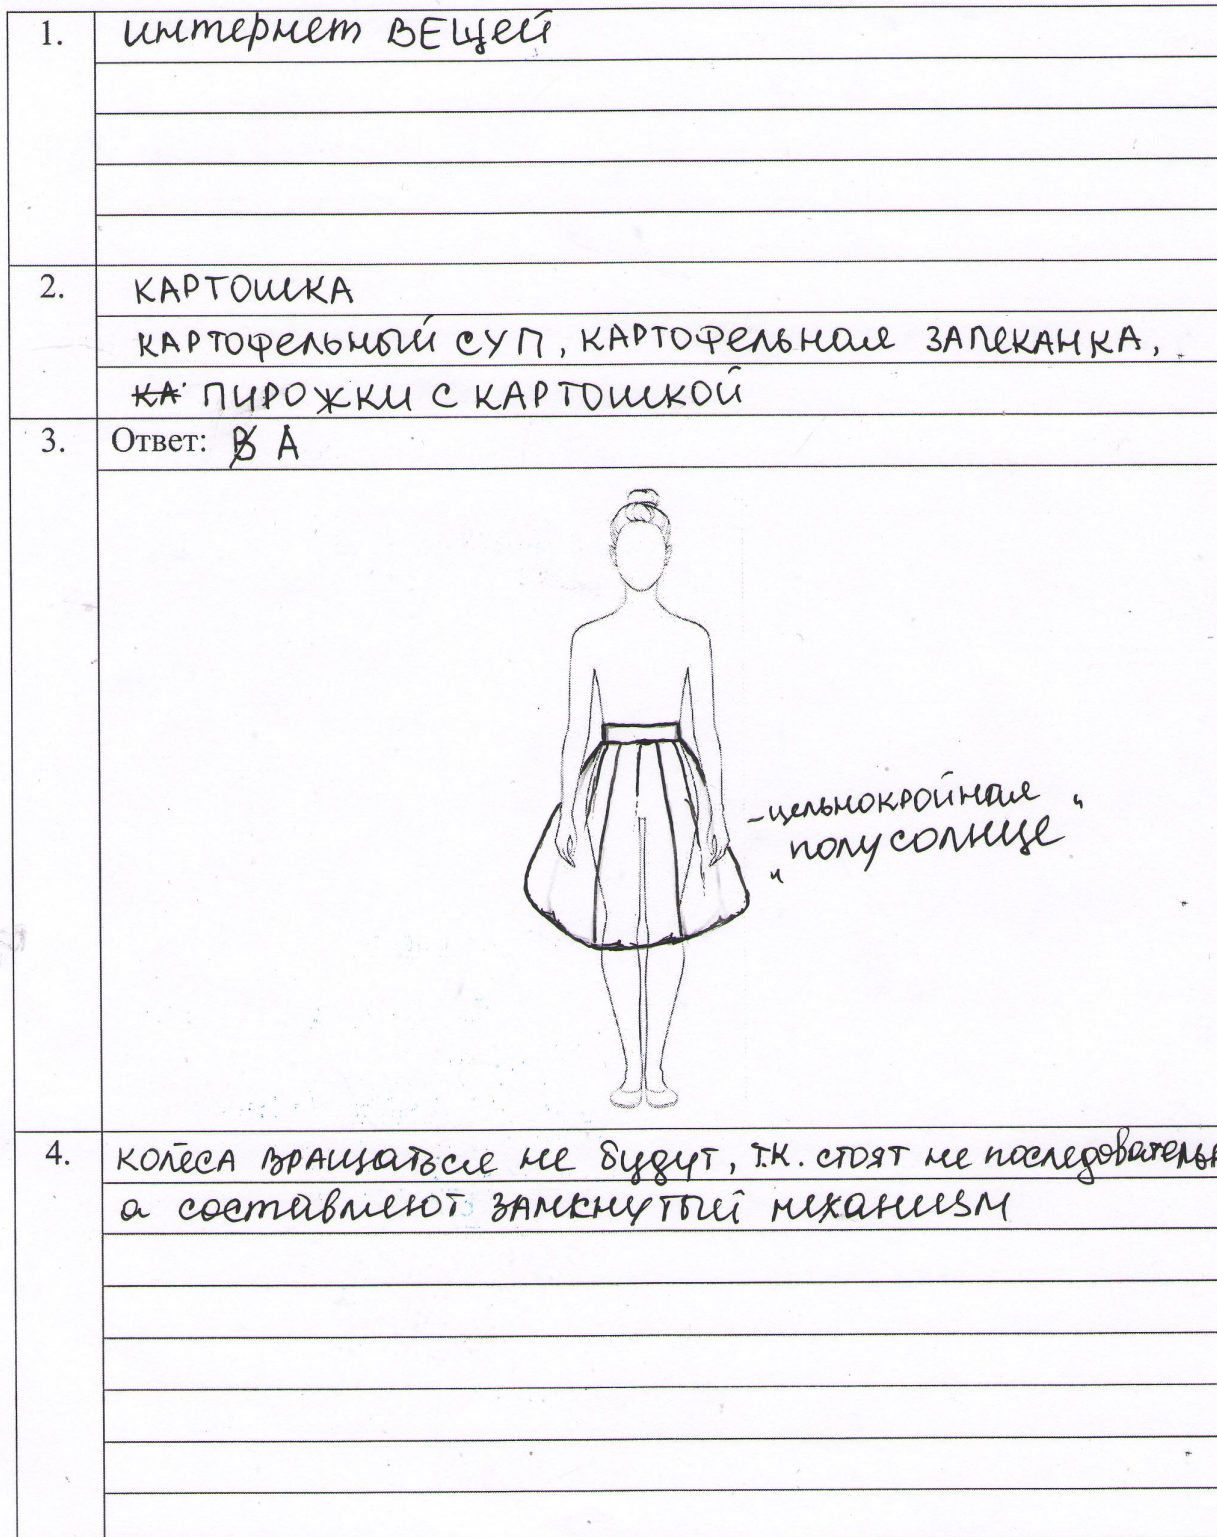 1. интернет ВЕЩей
2. КАРТОШКА
КАРТОФЕЛЬНЫЙ СУП, КАРТОФЕЛЬНАЯ ЗАПЕКАНКА,
КА ПИРОЖКИ С КАРТОШКОЙ
3. Ответ: В А
- цельнокройная
"полусолнце"
4. колёса вращаться не будут, т.к. стоят не последовательн
а составляют замкнутый механизм